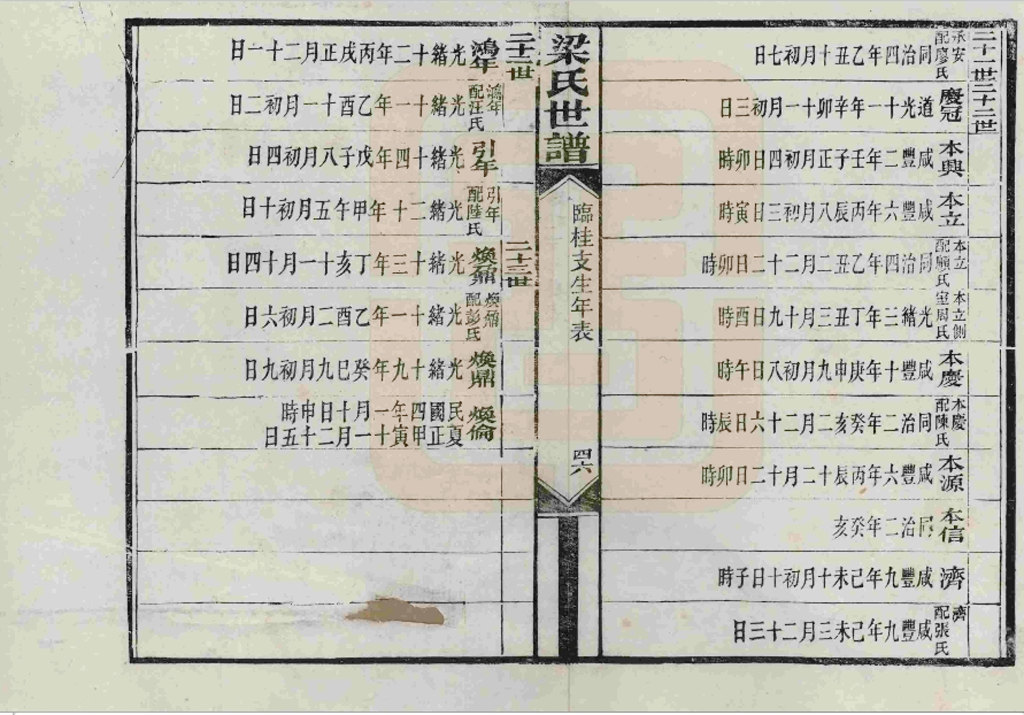 二十一世
承安配廖氏 同治四年乙丑十月初七日
二十二世
慶冠 道光十一年辛卯十一月初三日
本興 咸豐二年壬子正月初四日卯時
本立 咸豐六年丙辰八月初三日寅時
本立配顧氏 同治四年乙丑二月二十二日卯時
本立側室周氏 光緒三年丁丑三月十九日酉時
本慶 咸豐十年庚申九月初八日午時
本慶配陳氏 同治二年癸亥二月二十六日辰時
本源 咸豐六年丙辰十二月二十二日卯時
本信 同治二年癸亥
濟 咸豐九年己未十月初十日子時
濟配張氏 咸豐九年己未三月二十三日
梁氏世譜
臨桂支生年表
四六
二十二世
鴻年 光緒十二年丙戌正月二十一日
鴻年配汪氏 光緒十一年乙酉十一月初二日
引年 光緒十四年戊子八月初四日
引年配陸氏 光緒二十年甲午五月初十日
二十三世
煥鼐 光緒十三年丁亥十一月十四日
煥鼐配彭氏 光緒十一年乙酉二月初六日
煥鼎 光緒十九年癸巳九月初九日
煥倫 民國四年一月十日申時
夏正甲寅十一月二十五日